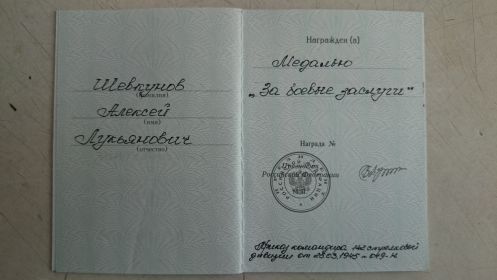 Шевкунов
(фамилия)
Алексей
(имя)
Лукьянович
(отчество)
Награжден (а)
Медалью
„За боевые заслуги"
Награда №
Президент
Российской Федерации
Приказ командира 142 стрелковой
дивизии от 23.03.1945 № 049-н